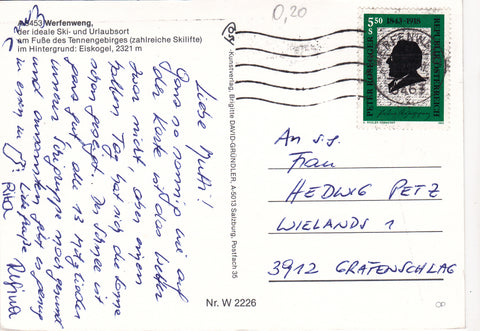 A-5453 Werfenweng,
der ideale Ski- und Urlaubsort
am Fuße des Tennengebirges (zahlreiche Skilifte)
im Hintergrund: Eiskogel, 2321 m
Liebe Mutti!
Ganz so sonnig wie auf
der Karte ist das Wetter
zwar nicht, aber einen
halben Tag hat sich die Sonne
schon gezeigt. Der Schnee ist
ganz gut, alle 13 Mitglieder
unserer Skigruppe noch gesund
und ansonsten gibt es genug
in essen in
Liebe Grüße
Rita
-Kunstverlag, Brigitte DAVID-GRÜNDLER, A-5013 Salzburg, Postfach 35
Nr. W 2226
0,20
5.50
S
1843-1918
PETER ROSEGGER
REPUBLIK ÖSTERREICH
WERFENWENG
An s.g.
Frau
HEDWIG PETZ
WIELANDS 1
3912 GRAFENSCHLAG
OP